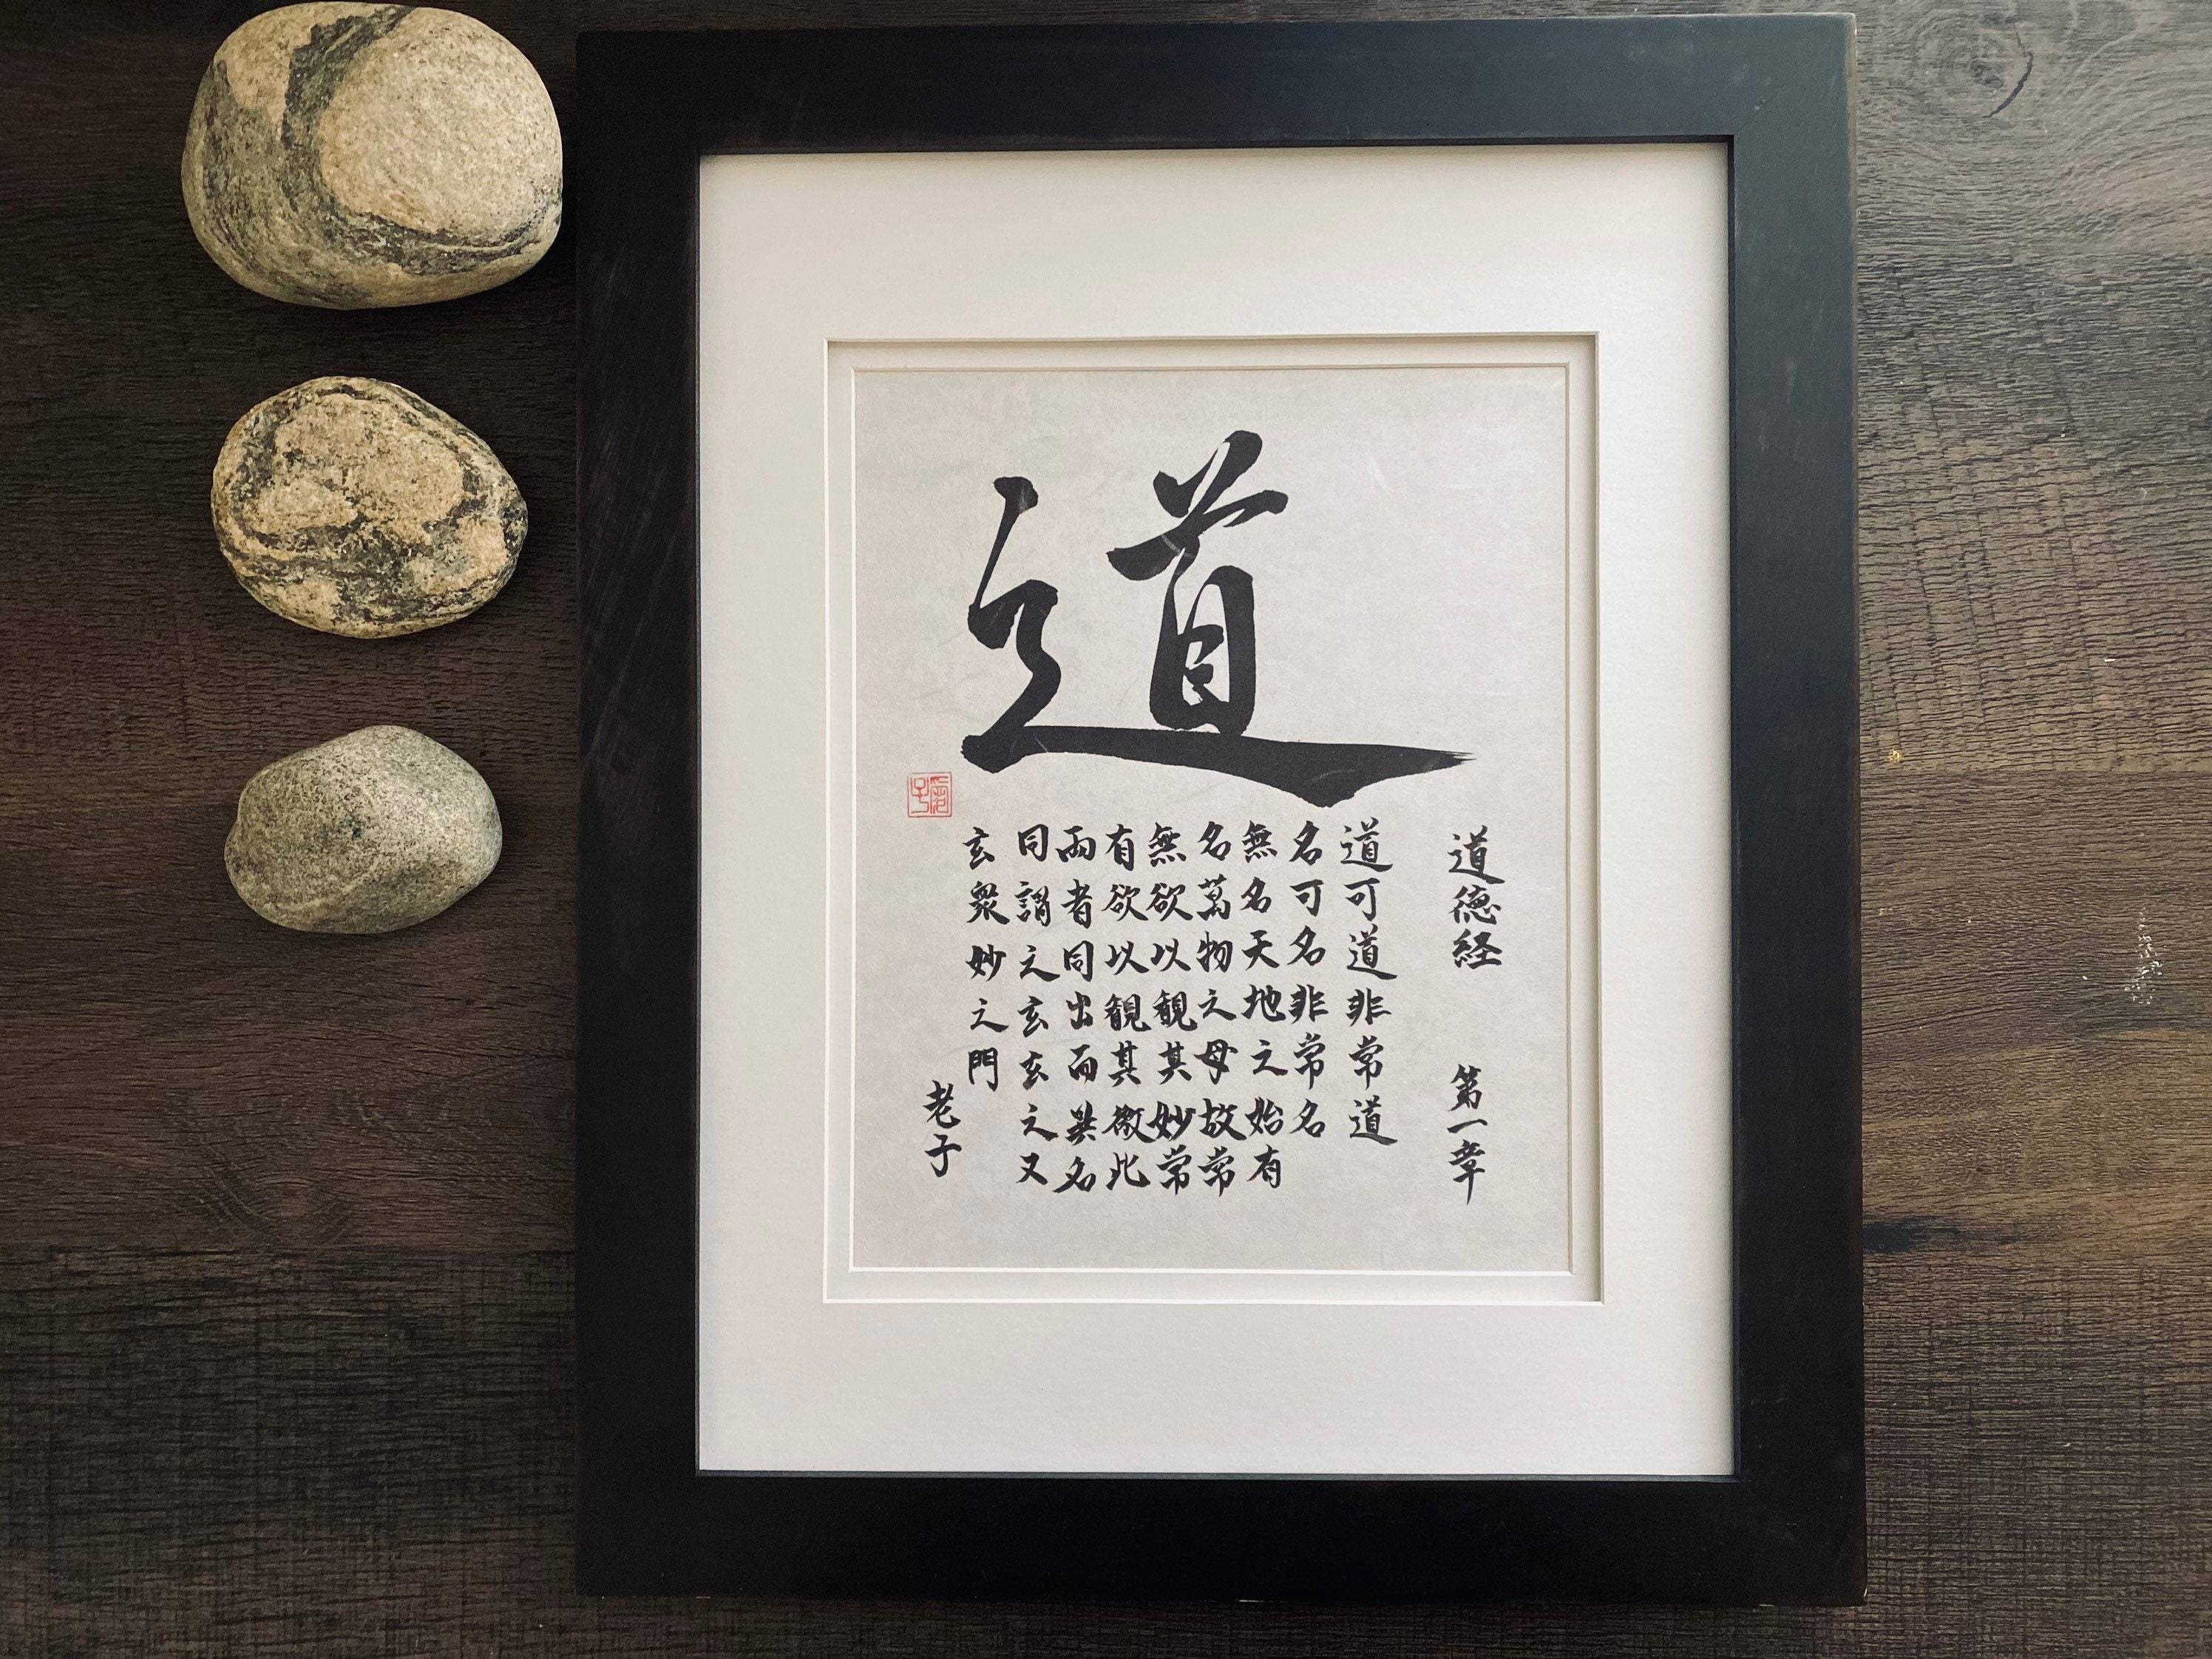 道
道徳経 第一章
道可道非常道
名可名非常名
無名天地之始有
名萬物之母故常
無欲以観其妙常
有欲以観其徼此
兩者同出而異名
同謂之玄玄之又
玄衆妙之門
老子